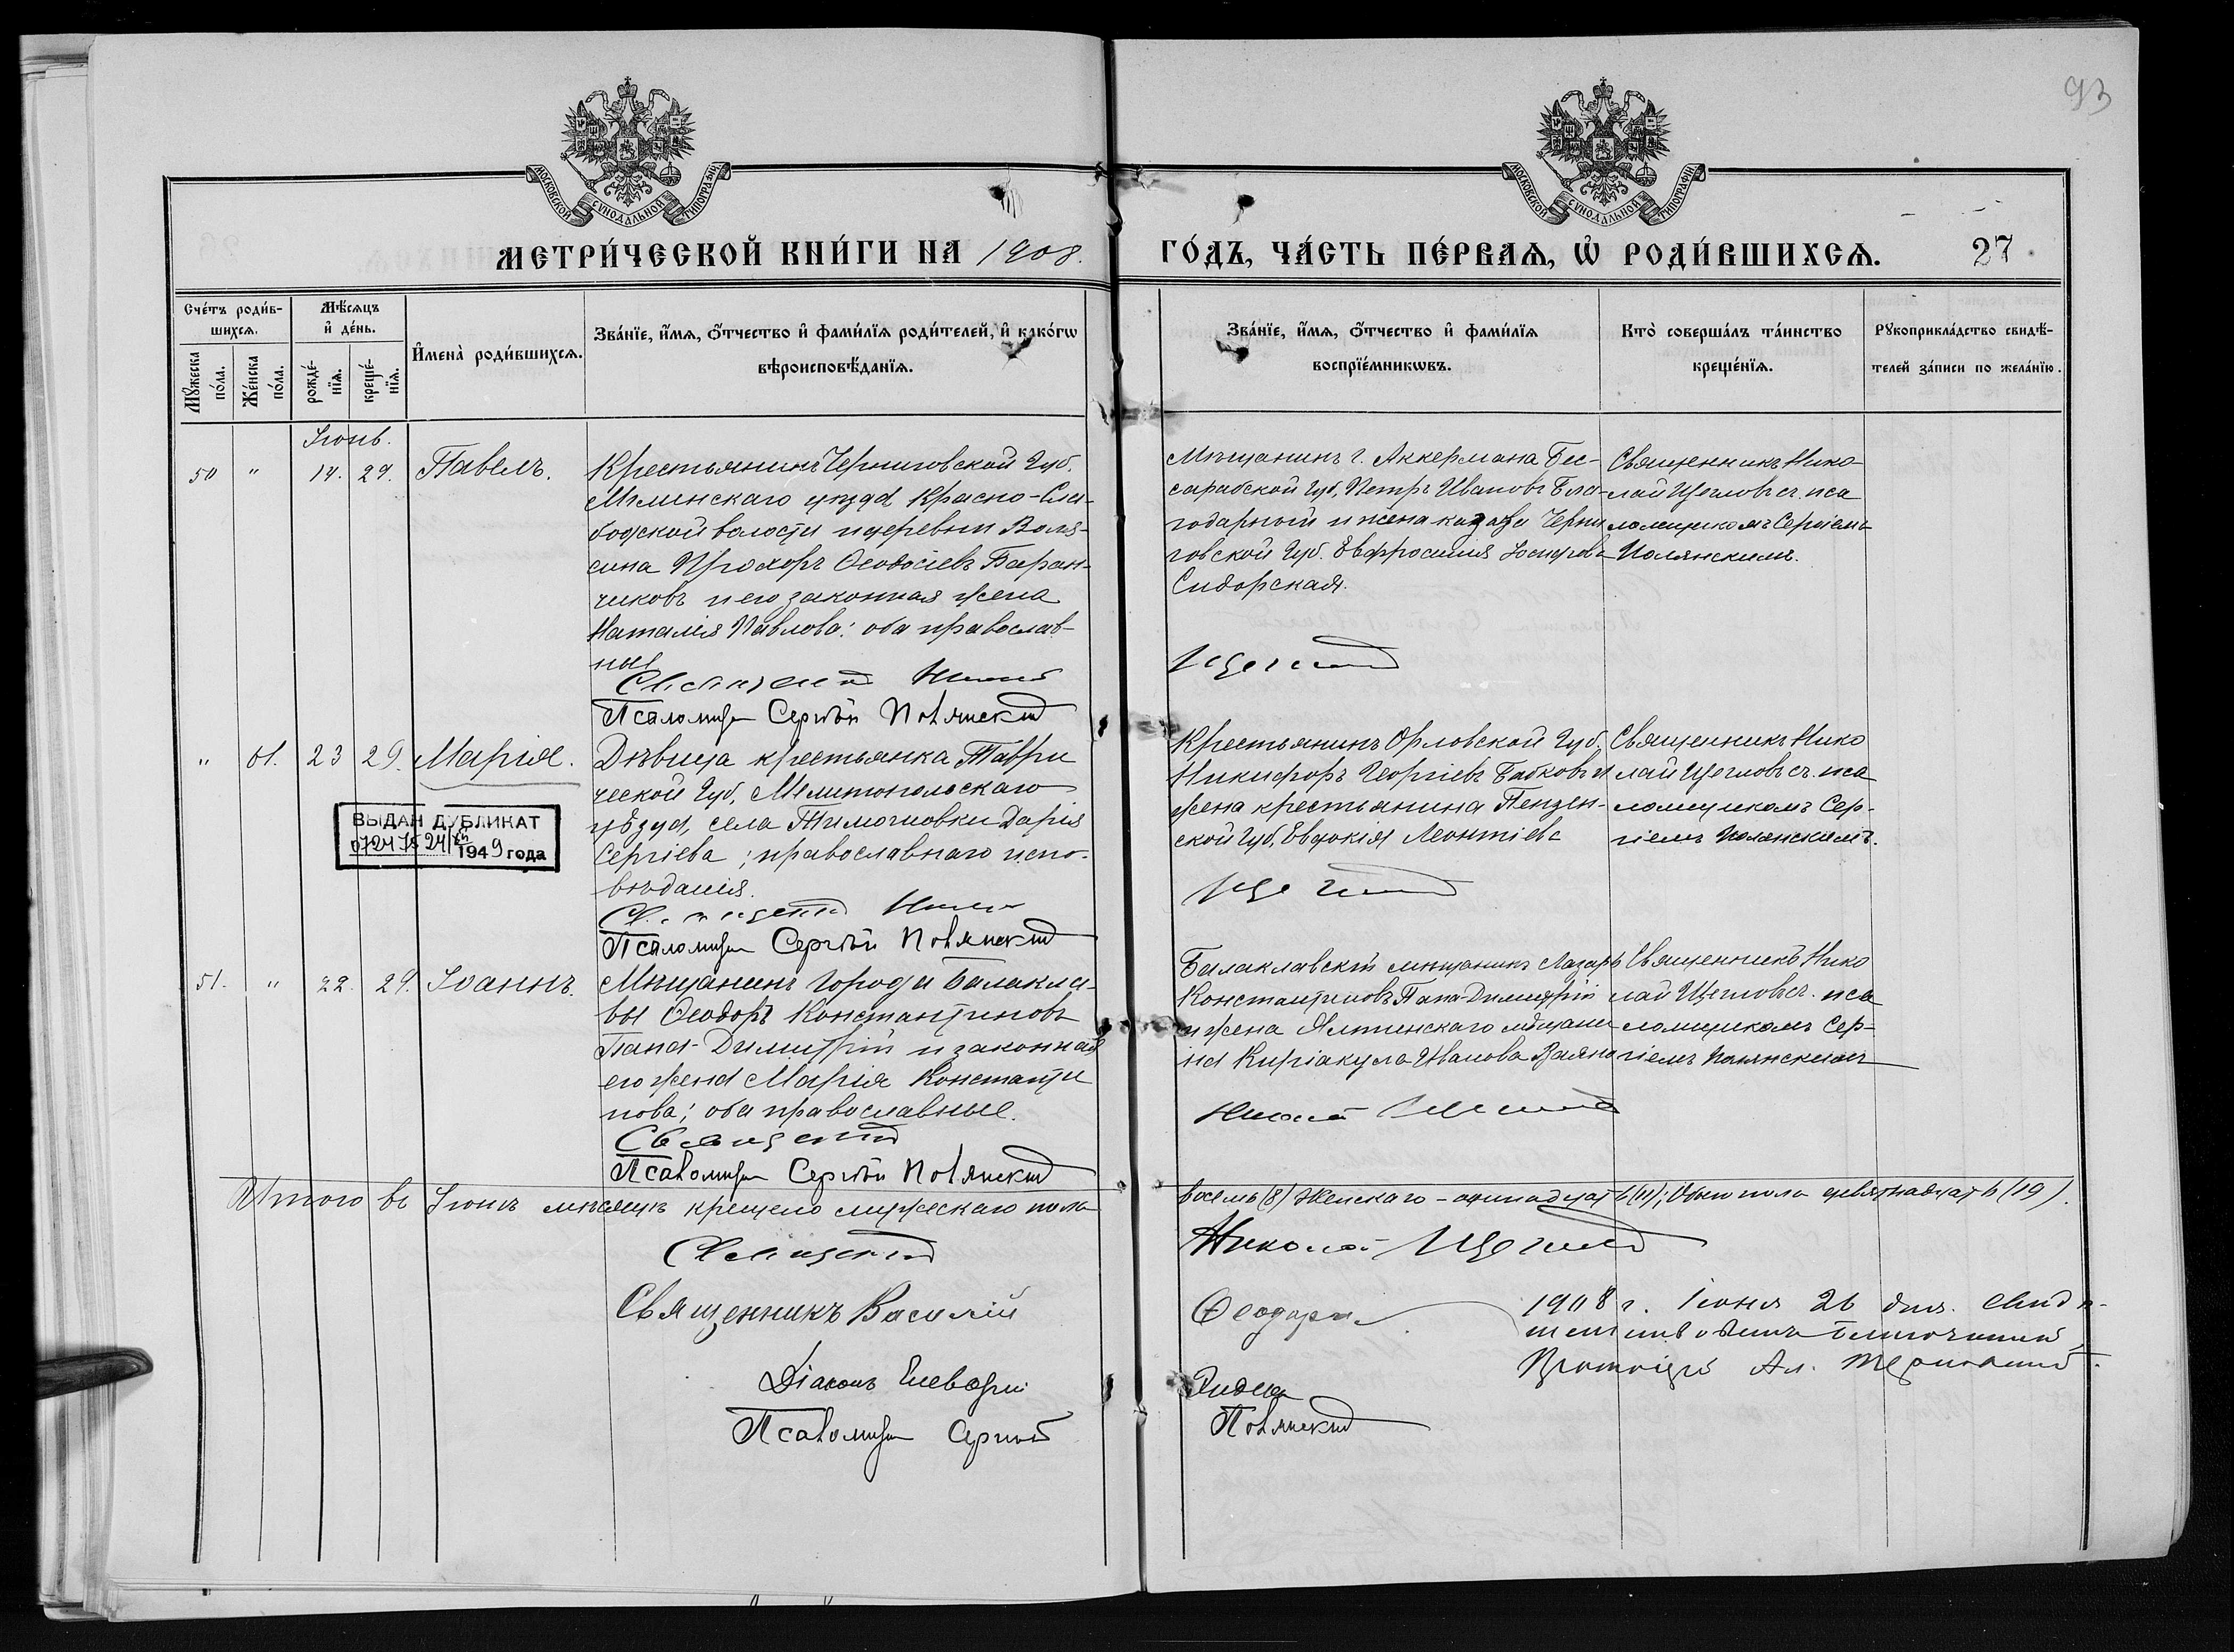 93
МОСКОВСКОЙ СѴНОДАЛЬНОЙ ТИПОГРАФІИ
МОСКОВСКОЙ СѴНОДАЛЬНОЙ ТИПОГРАФІИ
МЕТРИ́ЧЕСКОЙ КНИ́ГИ НА 1908.
ГО́ДЪ, ЧА́СТЬ ПЕ́РВАѦ, Ѽ РОДИ́ВШИХСѦ. 27.
Сче́тъ роди́в-
шихсѧ.
Мѣ́сѧцъ
и҆ де́нь.
И҆мена̀ роди́вшихсѧ.
Зва́нїе, и҆́мѧ, ѻ҆́тчество и҆ фами́лїѧ роди́телей, и҆ како́гѡ
вѣроисповѣ́данїѧ.
Мꙋ́жеска
по́ла.
Же́нска
по́ла.
рожде́-
нїѧ.
креще́-
нїѧ.
Зва́нїе, и҆́мѧ, ѻ҆́тчество и҆ фами́лїѧ
воспрїе́мникѡвъ.
Кто̀ соверша́лъ та́инство
креще́нїѧ.
Рꙋкоприкла́дство свидѣ́-
телей за́писи по жела́нїю.
Іюнь.
50 " 14. 29. Павелъ.
Крестьянинъ Черниговской Губ.
Мглинскаго уѣзда Красно-Сло-
бодской волости и деревни Воля-
сина Прохоръ Ѳеодосіевъ Баран-
чиковъ и его законная жена
Наталія Павлова: оба православ-
ные
Священникъ Николай
Псаломщикъ Сергѣй Полянскій
Мѣщанинъ г. Аккермана Бес-
сарабской Губ, Петръ Ивановъ Бла-
годарный и жена казака Черни
говской Губ. Евфросинія Іосифова
Сидорская.
Щегловъ
Священникъ Нико-
лай Щегловъ съ пса
ломщикомъ Сергіемъ
Полянскимъ.
" 61. 23 29. Марія.
ВЫДАН ДУБЛИКАТ
1949 года
Дѣвица крестьянка Таври
ческой Губ, Мелитопольскаго
уѣзда, села Тимошовки Дарія
Сергіева; православнаго испо-
вѣданія.
Священникъ Николай
Псаломщикъ Сергѣй Полянскій
Крестьянинъ Орловской Губ,
Никифоръ Георгіевъ Бабковъ и
жена крестьянина Пензен-
ской Губ, Евдокія Леонтіева
Щегловъ
Священникъ Нико
лай Щегловъ съ пса
ломщикомъ Сер-
гіемъ Полянскимъ.
51. " 22. 29. Іоаннъ.
Мѣщанинъ города Балакла-
вы Ѳеодоръ Константиновъ
Папа-Димитрій и законная
его жена Марія Константи
нова; оба православные.
Священникъ
Псаломщикъ Сергѣй Полянскій
Балаклавскій мѣщанинъ Лазарь
Константиновъ Папа-Димитрій
и жена Ялтинскаго мѣщани
на Киріакула Иванова
Николай Щегловъ
Священникъ Нико
лай Щегловъ съ пса
ломщикомъ Сер-
гіемъ Полянскимъ
Итого въ Іюнѣ мѣсяцѣ крещено мужескаго пола
восемь (8) женскаго - одинадцать (11); Обоего пола девятнадцать (19).
Священникъ
Николай Щегловъ
Священникъ Василій
Діаконъ
Псаломщикъ Сергѣй
Полянскій
1908 г. Іюня 26 дня.
Благочинный
Протоіерей Ал.